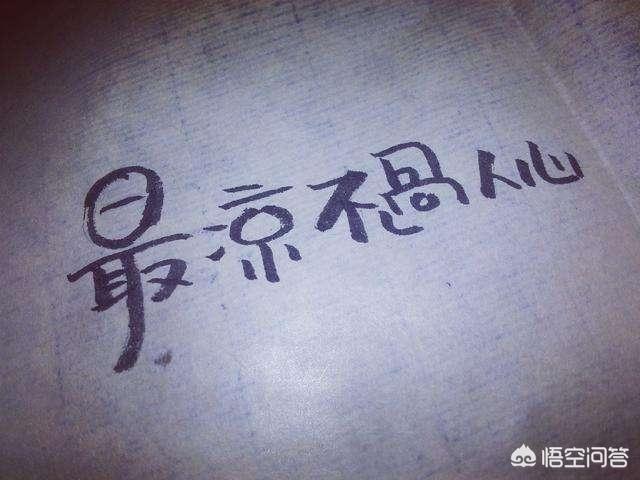 最凉不過人心
悟空问答